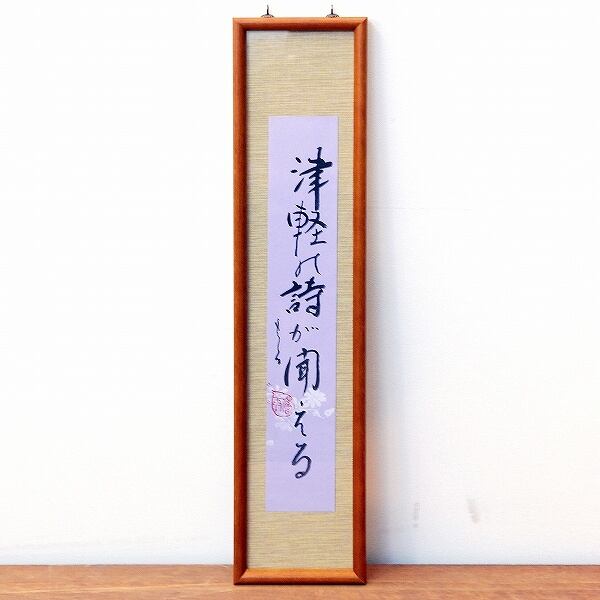 津軽の詩が聞える